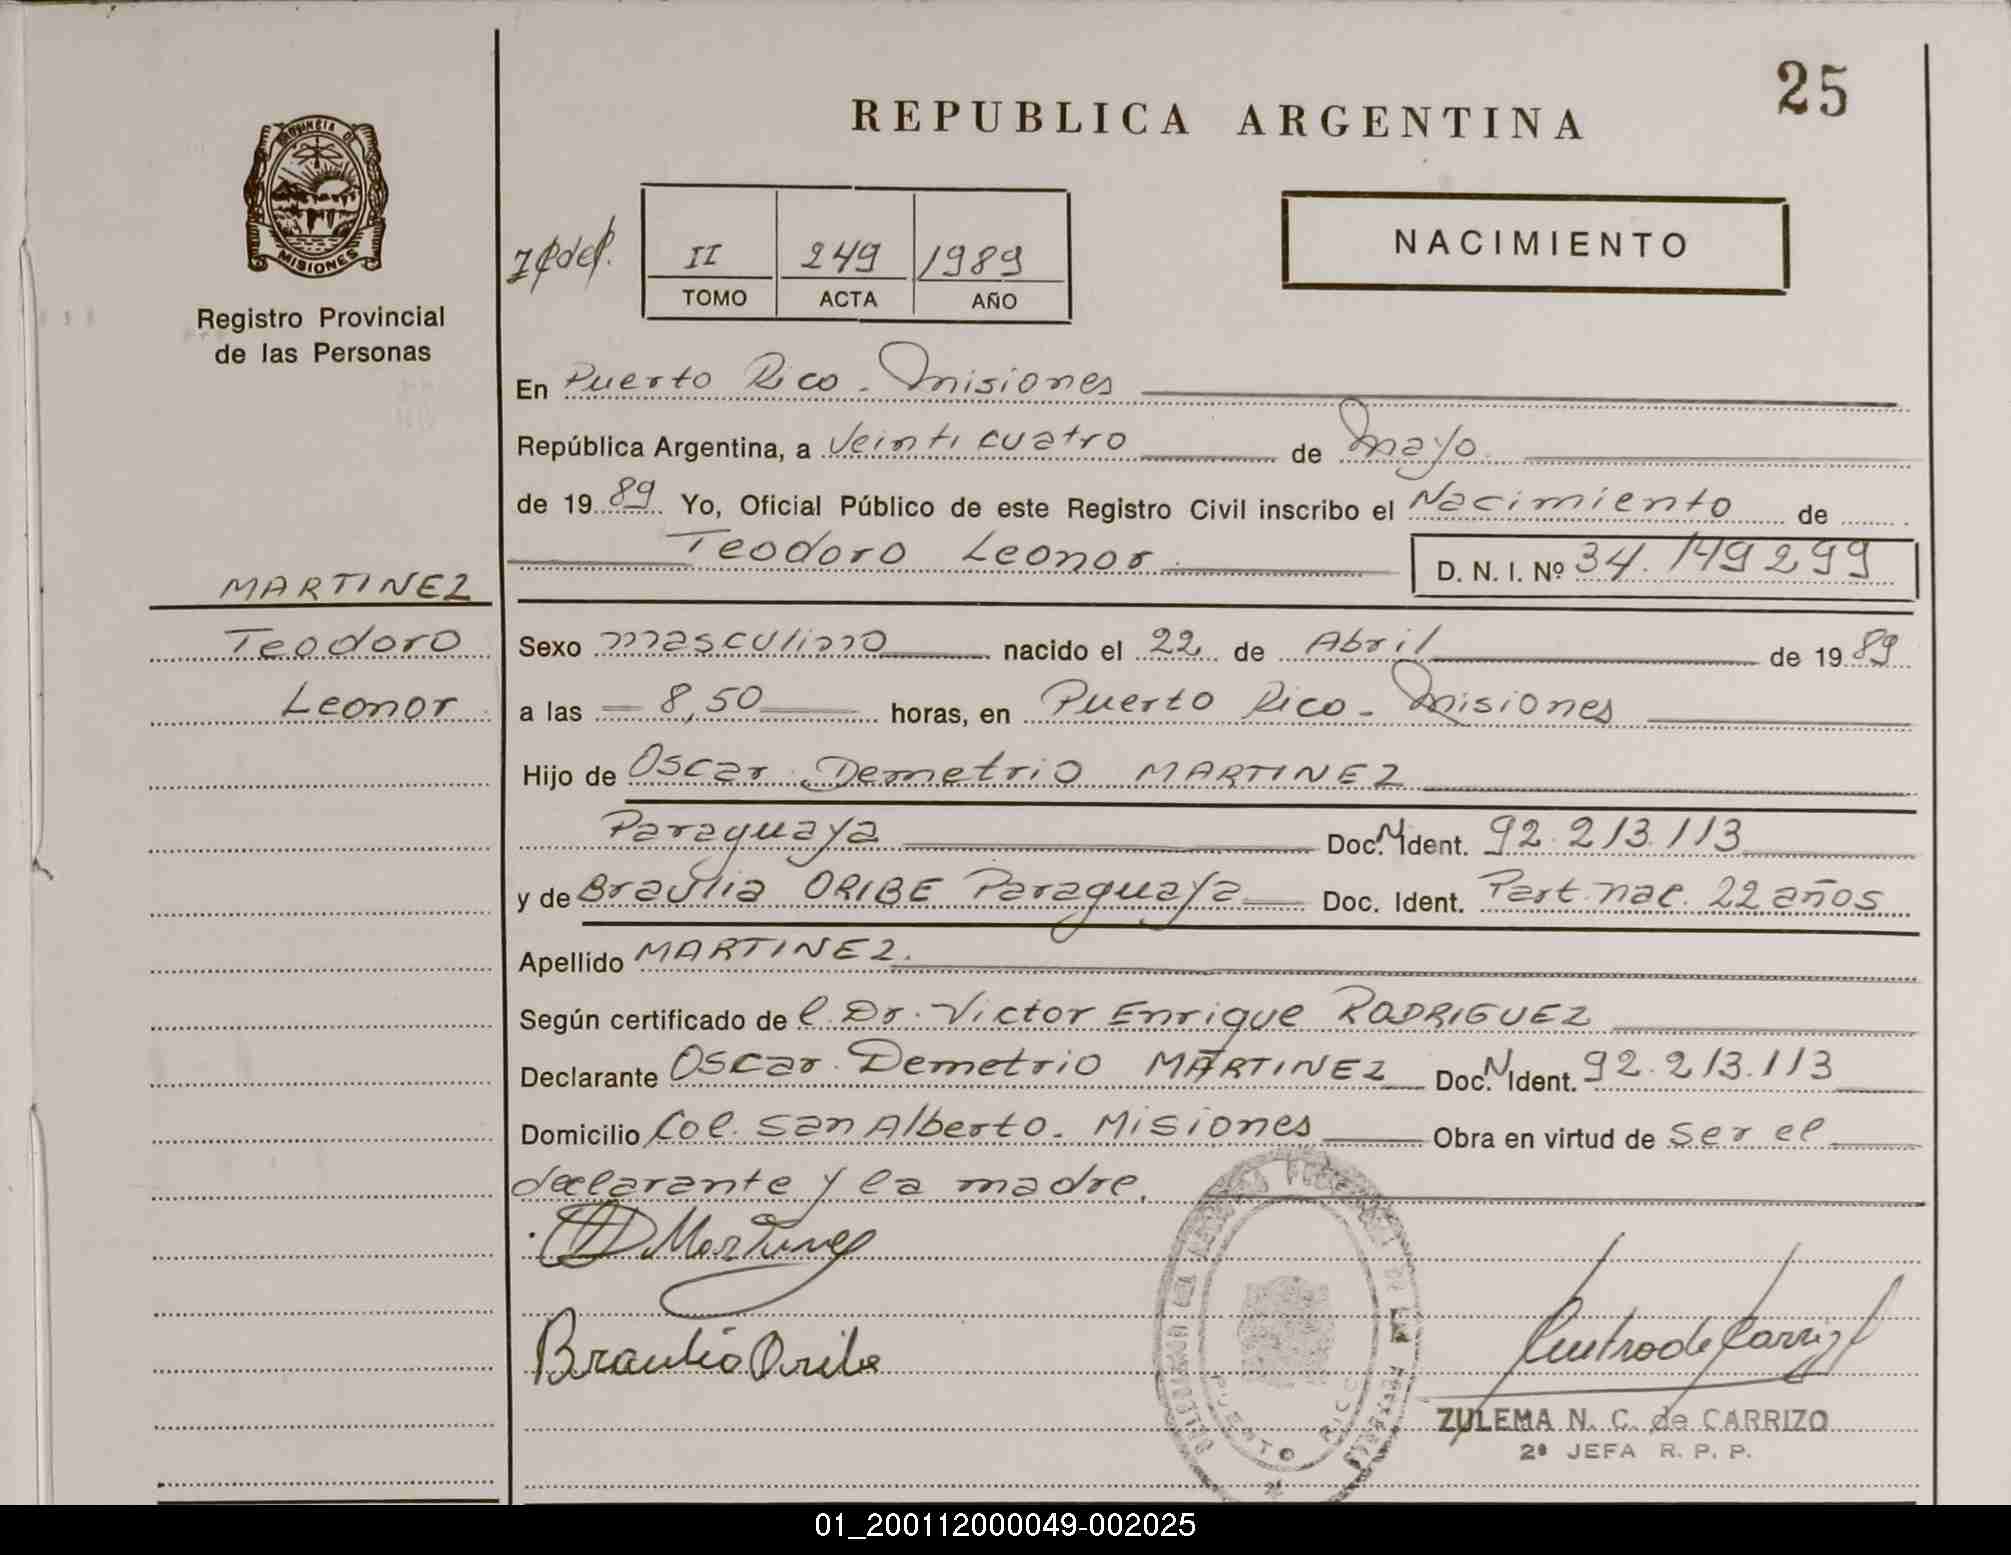 25
REPUBLICA ARGENTINA
PROVINCIA DE
MISIONES
Registro Provincial
de las Personas
II 249 1989
TOMO ACTA AÑO
NACIMIENTO
En Puerto Rico - Misiones
República Argentina, a Veinticuatro de Mayo
de 1989 Yo, Oficial Público de este Registro Civil inscribo el Nacimiento de
Teodoro Leonor D. N. I. Nº 34.149299
MARTINEZ
Teodoro
Leonor
Sexo masculino nacido el 22 de Abril de 1989
a las 8,50 horas, en Puerto Rico - Misiones
Hijo de Oscar Demetrio MARTINEZ
Paraguaya Doc. N Ident. 92.213.113
y de Braulia ORIBE Paraguaya Doc. Ident. Part. nac. 22 años
Apellido MARTINEZ.
Según certificado de l Dr. Victor Enrique RODRIGUEZ
Declarante Oscar Demetrio MARTINEZ Doc. N Ident. 92.213.113
Domicilio Col. San Alberto. Misiones Obra en virtud de ser el
declarante y la madre.
Martinez
Braulia Oribe
PUERTO RICO
ZULEMA N. C. de CARRIZO
2ª JEFA R. P. P.
01_200112000049-002025